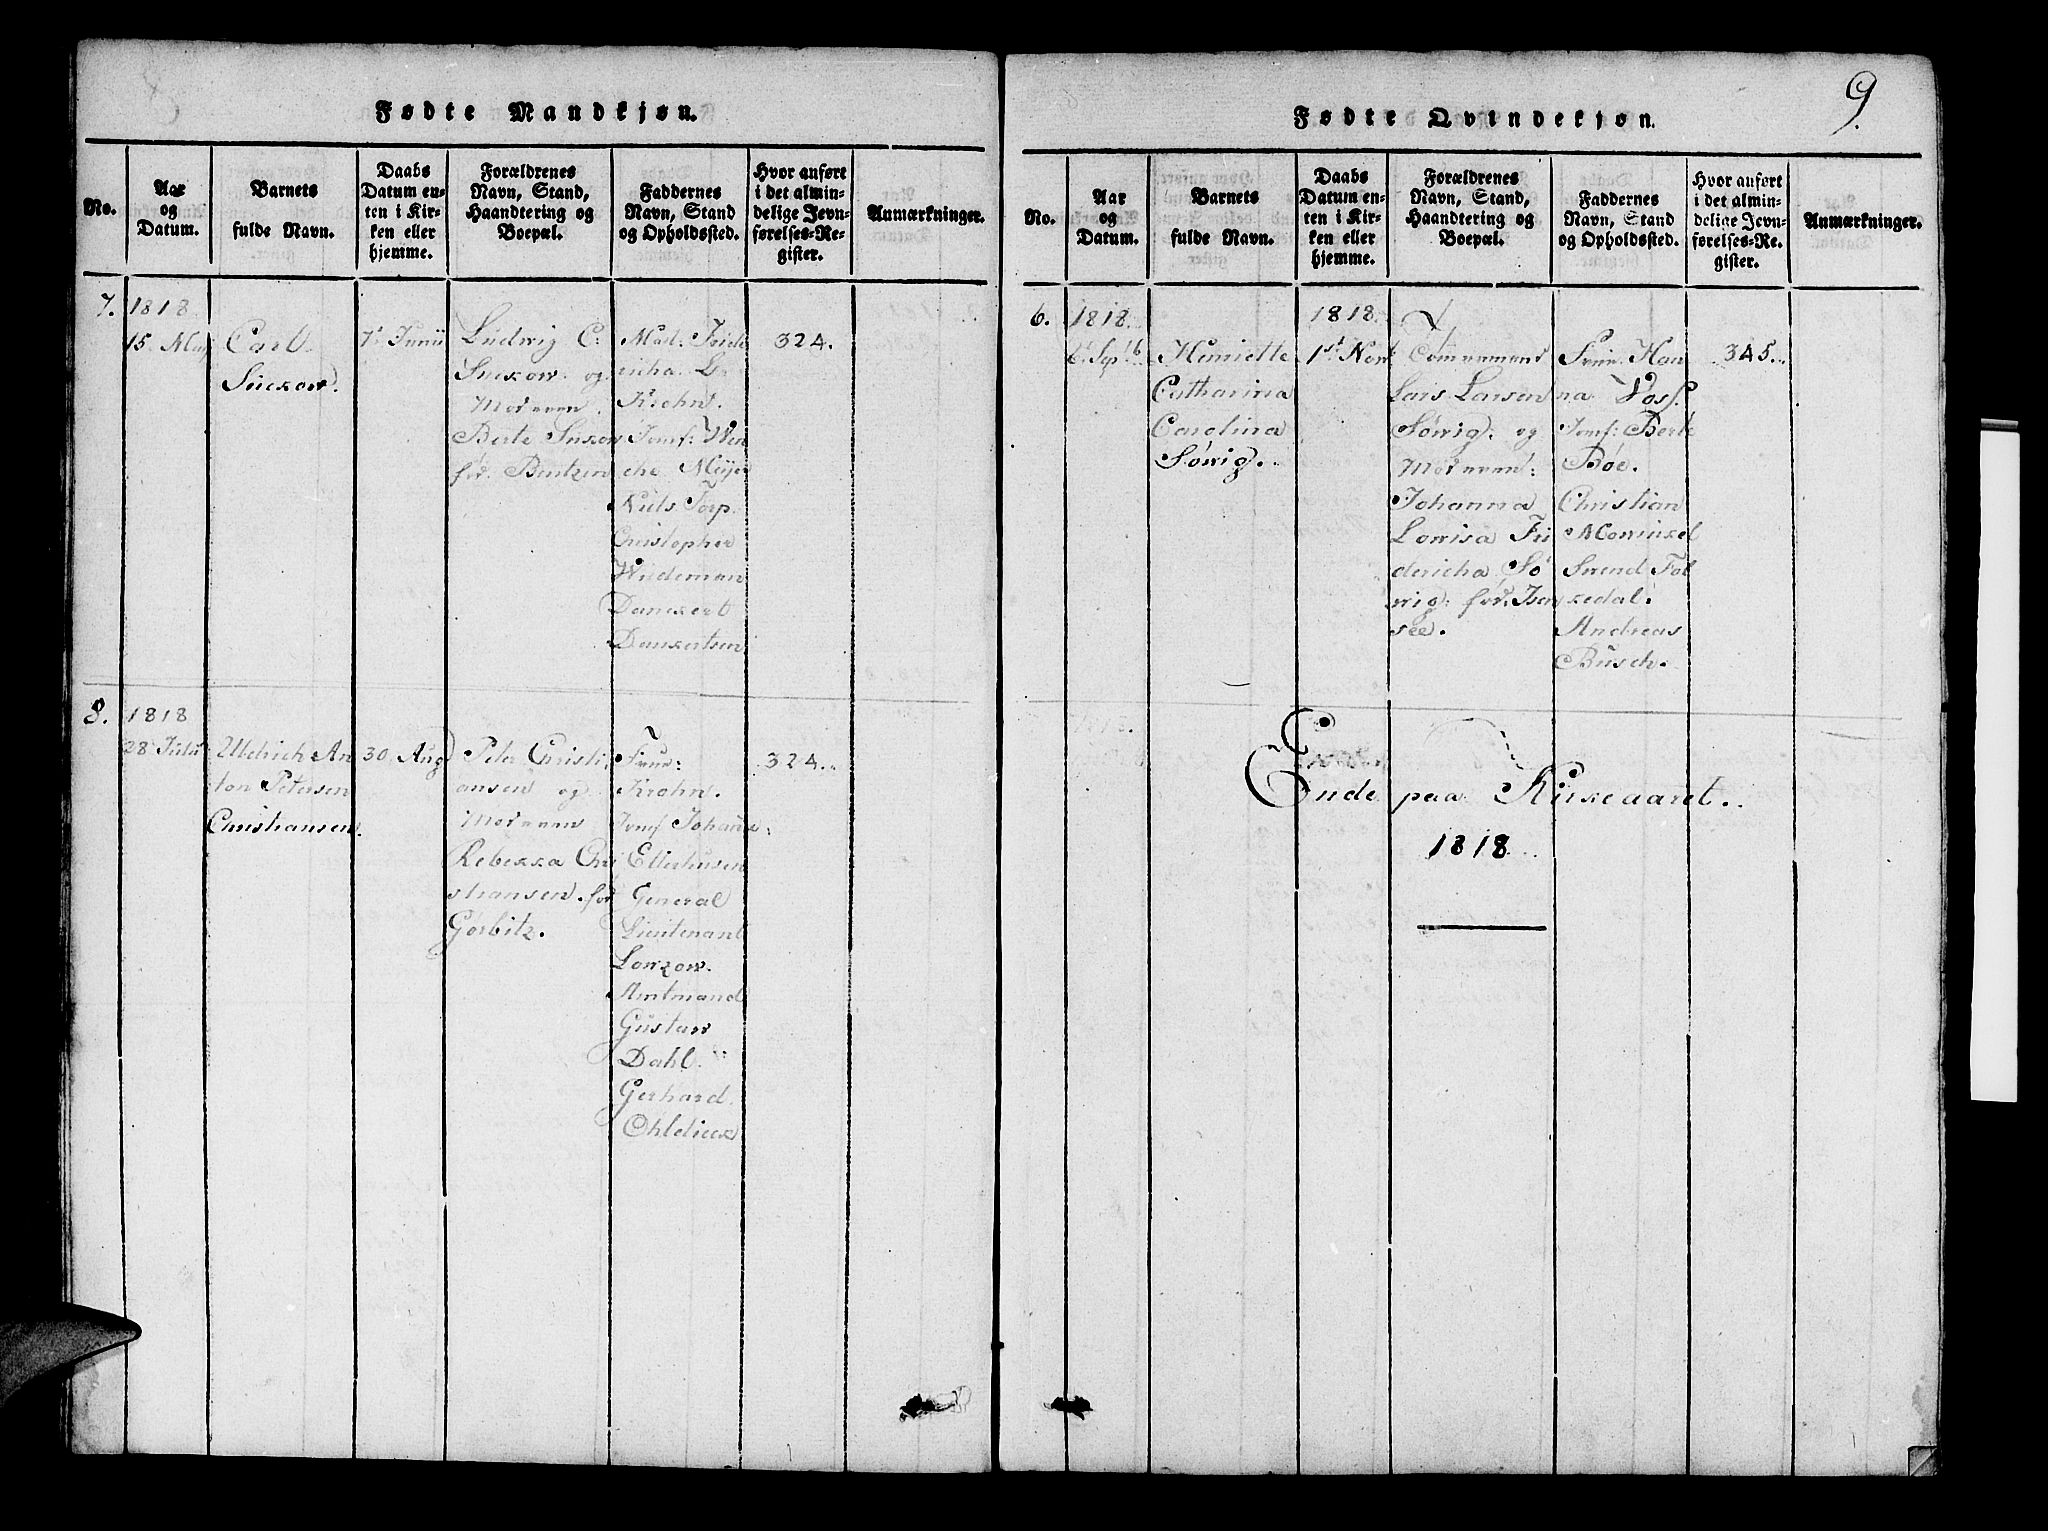 9.
Fødte Mandkjøn.
No.
Aar
og
Datum.
Barnets
fulde Navn.
Daabs
Datum en-
ten i Kir-
ken eller
hjemme.
Forældrenes
Navn, Stand,
Haandtering og
Boepæl.
Faddernes
Navn, Stand
og Opholdssted.
Hvor anført
i det almin-
delige Jevn-
førelses-Re-
gister.
Anmærkninger.
7.
1818
15. May
Carl
Suckow.
7. Junii
Ludwig C:
Suckow. og
Moderen
Berte Suckow
fød. Bentzen
Mad: Fride
richa L.
Krohn.
Jomf: Wen
che Meyer
Niels Torp.
Christopher
Wiideman
Danckert
Danckertsen
324.
8.
1818
28 Julii
Uldrich An
ton Petersen
Christiansen.
30 Aug
Peter Christi
ansen og
Moderen
Rebekka Chri
stiansen. fød
Görbitz.
Frue:
Krohn.
Jomf Johanne
Ellerhusen
General
Lieutenant
Lowzow.
Amtmand
Gustaw
Dahl.
Gerhard
Ohldieck
324.
Fødte Qvindekjøn.
No.
Aar
og
Datum.
Barnets
fulde Navn.
Daabs
Datum en-
ten i Kir-
ken eller
hjemme.
Forældrenes
Navn, Stand,
Haandtering og
Boepæl.
Faddernes
Navn, Stand
og Opholdssted.
Hvor anført
i det almin-
delige Jevn-
førelses-Re-
gister.
Anmærkninger.
6.
1818.
6t Septb
Henriette
Catharina
Carolina
Sörwig.
1818.
1st Now
Lars Larsen
Sörwig. og
Moderen:
Johanna
Lowisa Fri
dericha Sö
rwig. fød. Jen
see.
Frue. Han
na Voss.
Jomf: Berte
Böe.
Christian
Mowinkel
Svend Fol
kedal.
Andreas
Büsch.
345.
Ende paa Kirkeaaret.
1818.